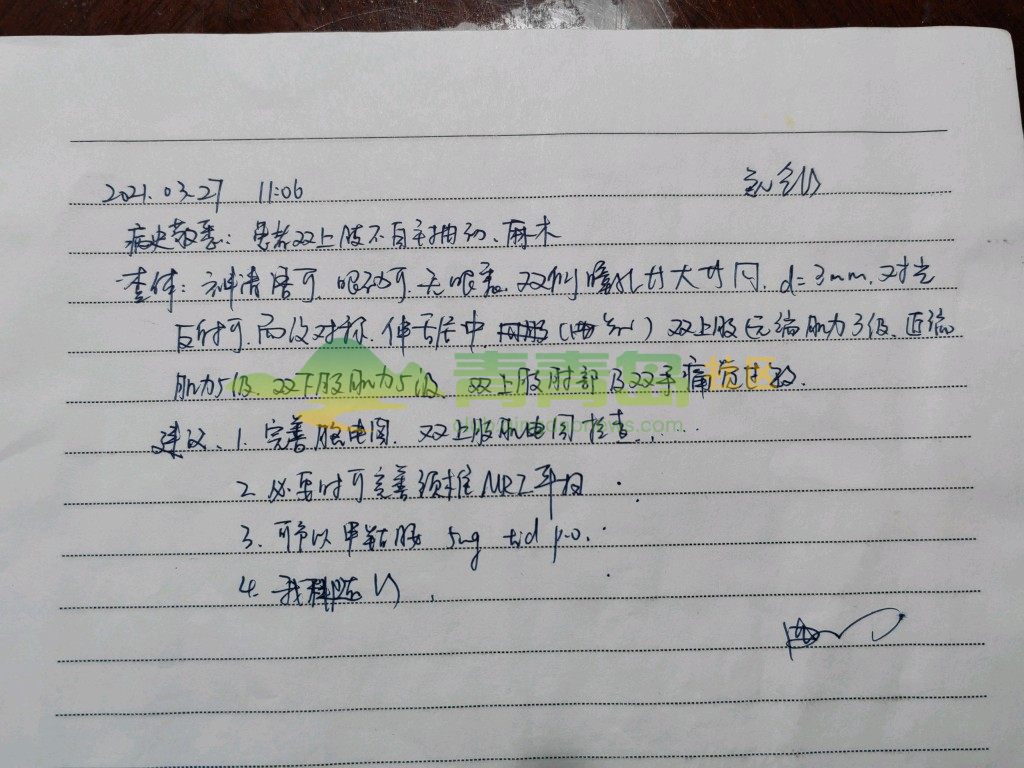 2021.03.27 11:06
病史敬悉：患者双上肢不自主抽动、麻木
查体：神清语可，眼动可，无眼震，双侧瞳孔等大等圆，d=3mm，对光
反射可，面纹对称，伸舌居中，双上肢远端肌力3级，近端
肌力5级，双下肢肌力5级，双上肢肘部及双手痛觉过敏.
青青岛社区
建议、1.完善脑电图，双上肢肌电图检查.
2.必要时可完善颈椎MRI平扫
3.可予以甲钴胺 5mg tid p.o.
4.我科随